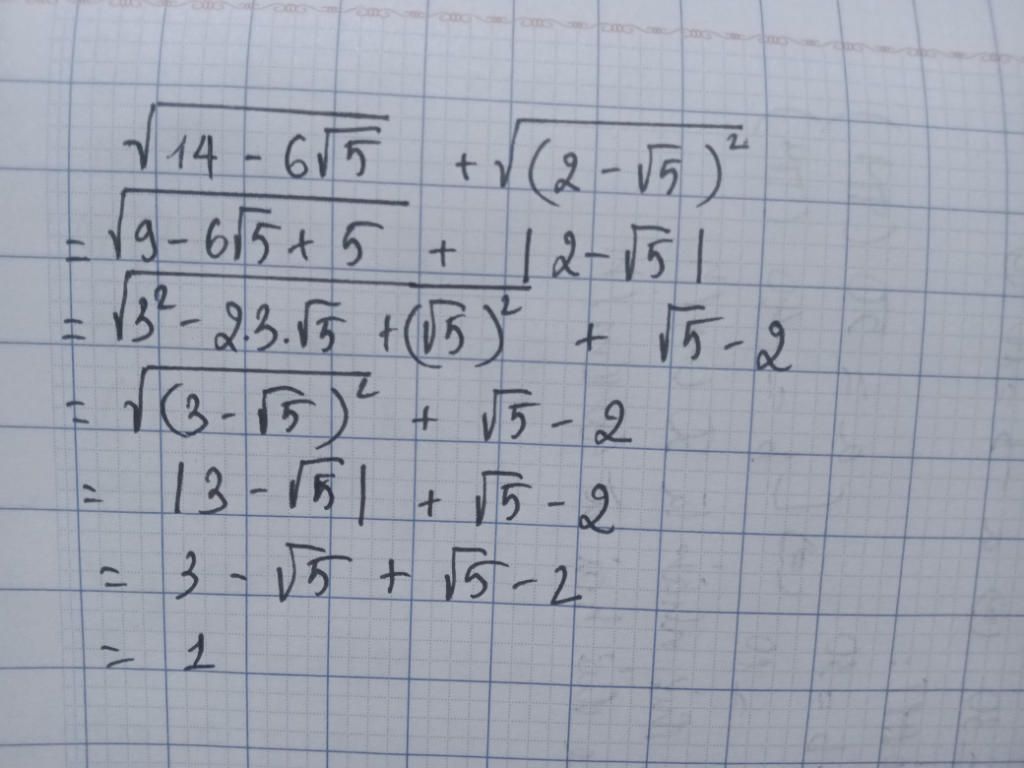 √(14 - 6√5) + √((2 - √5)²)
= √(9 - 6√5 + 5) + |2 - √5|
= √(3² - 2.3.√5 + (√5)²) + √5 - 2
= √((3 - √5)²) + √5 - 2
= |3 - √5| + √5 - 2
= 3 - √5 + √5 - 2
= 1